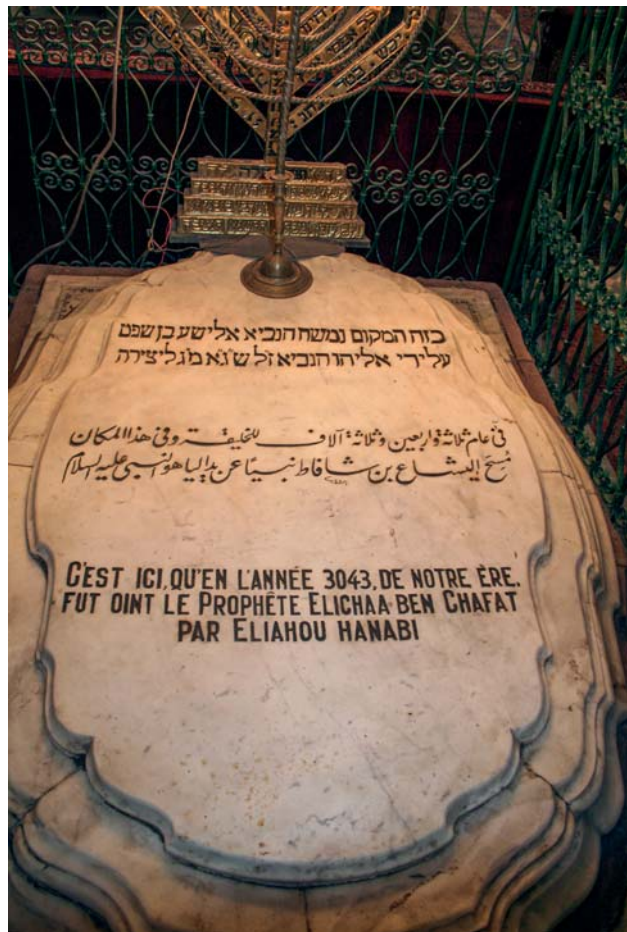 בזה המקום נמשח הנביא אלישע בן שפט
על ידי אליהו הנביא ז'ל ש'ג'א מ'ג ליצירה
في عام ثلاثة واربعين وثلاثة آلاف للخليقة وفي هذا المكان
مُسِحَ إليشاع بن شافاط نبيًا عن يد إلياهو النبي عليه السلام
C'EST ICI, QU'EN L'ANNÉE 3043, DE NOTRE ÈRE.
FUT OINT LE PROPHÊTE ELICHAA BEN CHAFAT
PAR ELIAHOU HANABI